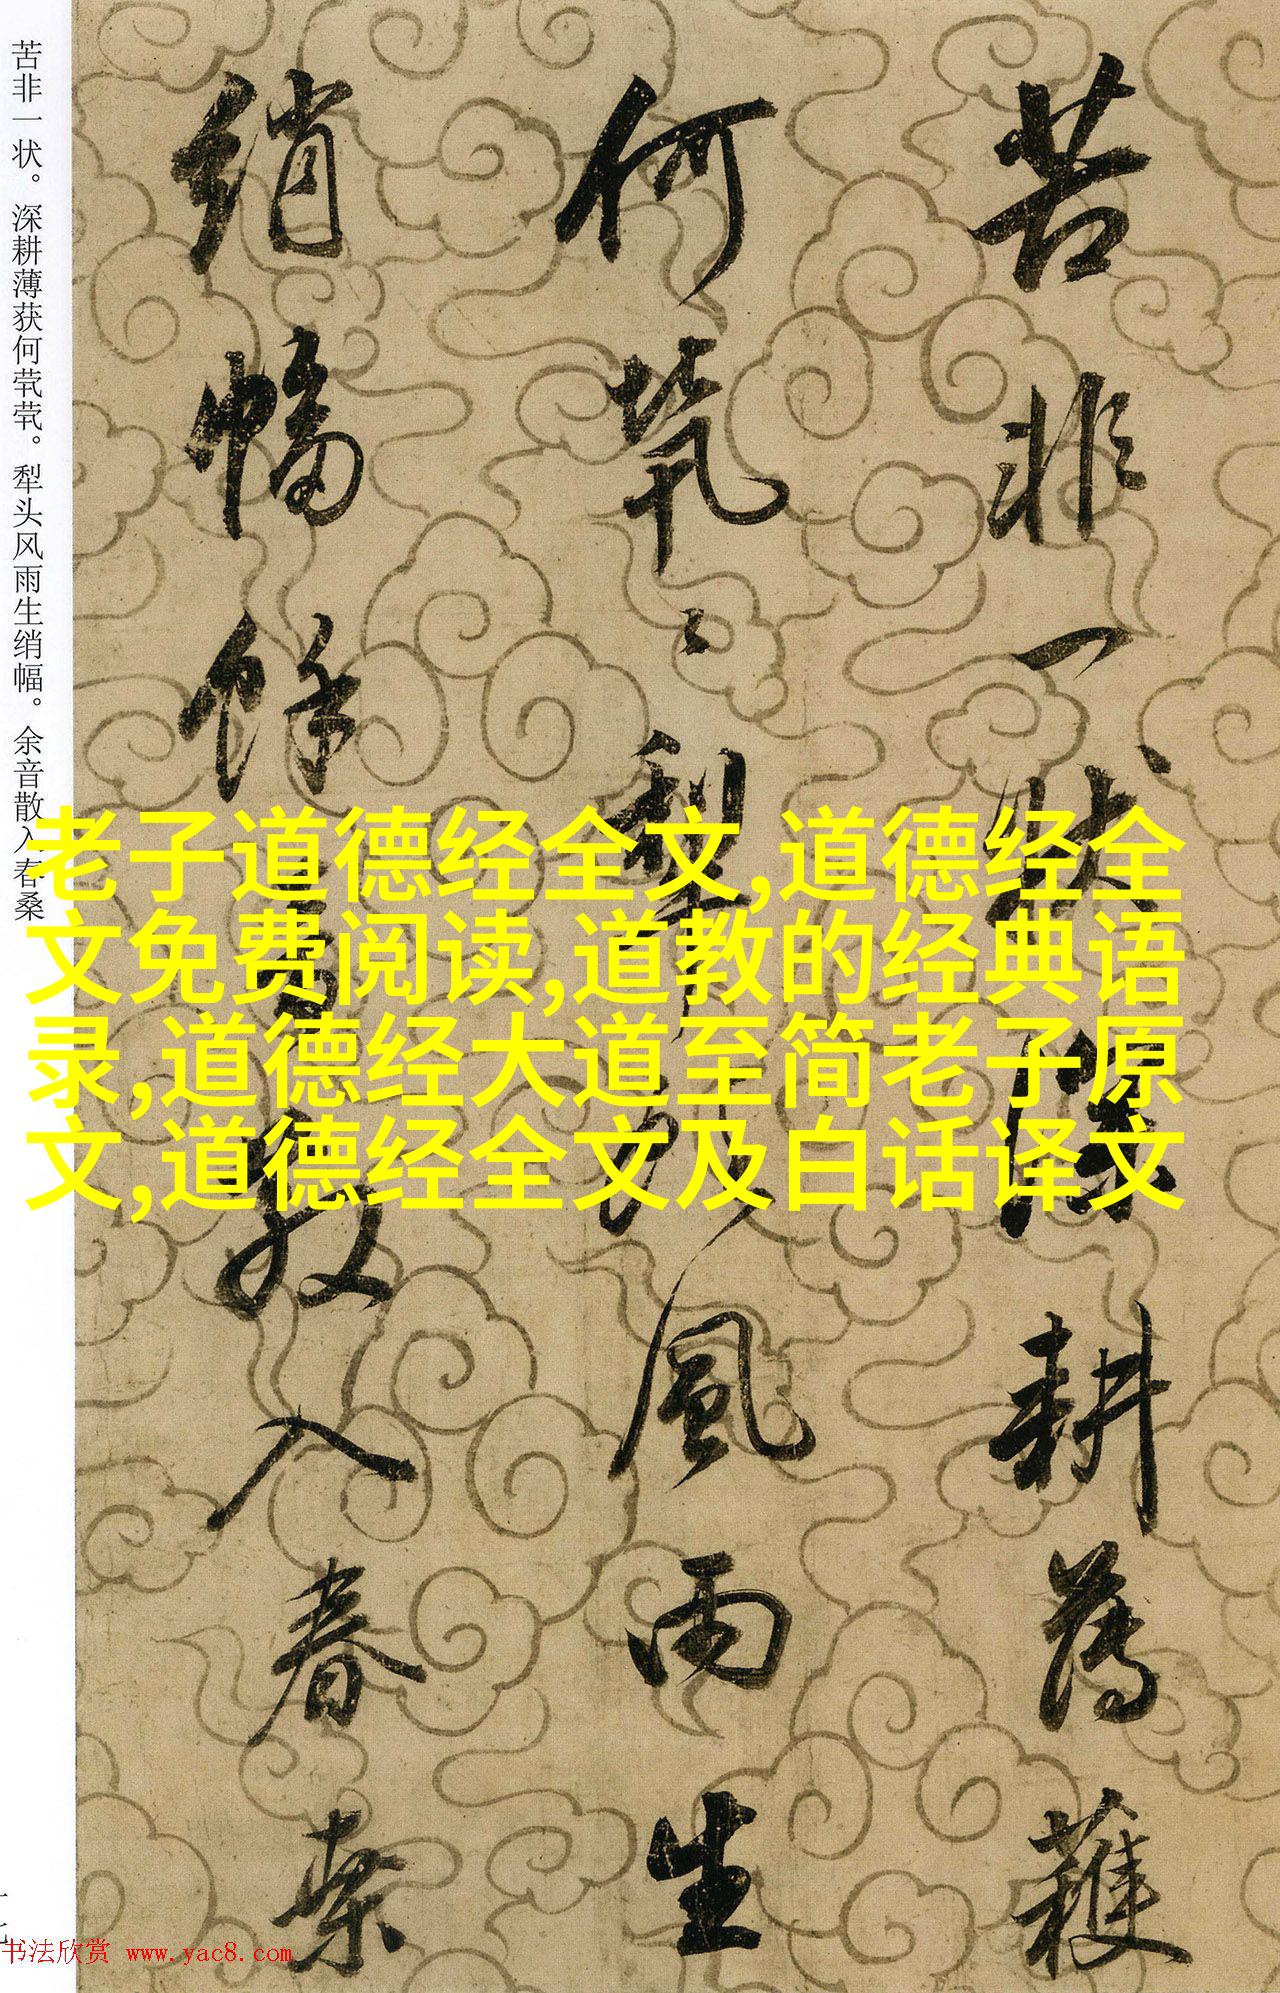 苦非一状深耕薄穫
何茕〻犁头風雨生
绡幅餘音散入春桑
苦非一状。深耕薄获何茕茕。犁头风雨生绡幅。余音散入春桑
老子道德经全文,道德经全
文免费阅读,道教的经典语
录,道德经大道至简老子原
文,道德经全文及白话译文
十七
书法欣赏 www.yac8.com